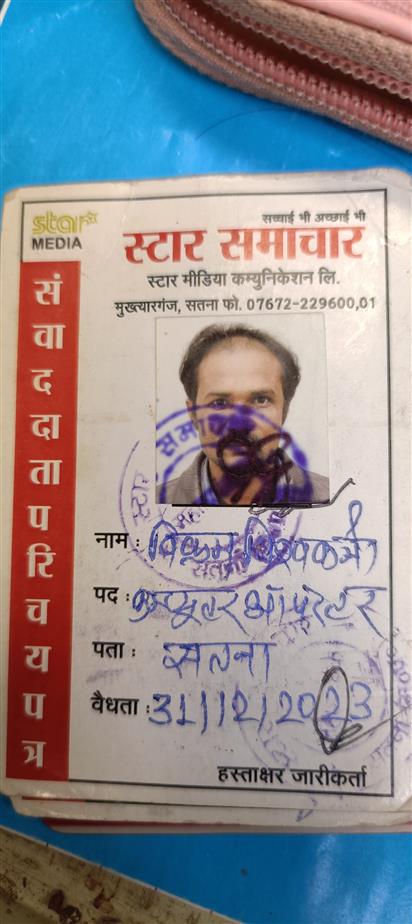 सच्चाई भी अच्छाई भी
star
MEDIA
स्टार समाचार
स्टार मीडिया कम्युनिकेशन लि.
मुख्त्यारगंज, सतना फो. 07672-229600,01
संवाददाता परिचय पत्र
स्टार समाचार
नाम : विक्रम विश्वकर्मा
पद : कम्प्यूटर ऑपरेटर
पता : सतना
वैधता : 31/12/2023
हस्ताक्षर जारीकर्ता